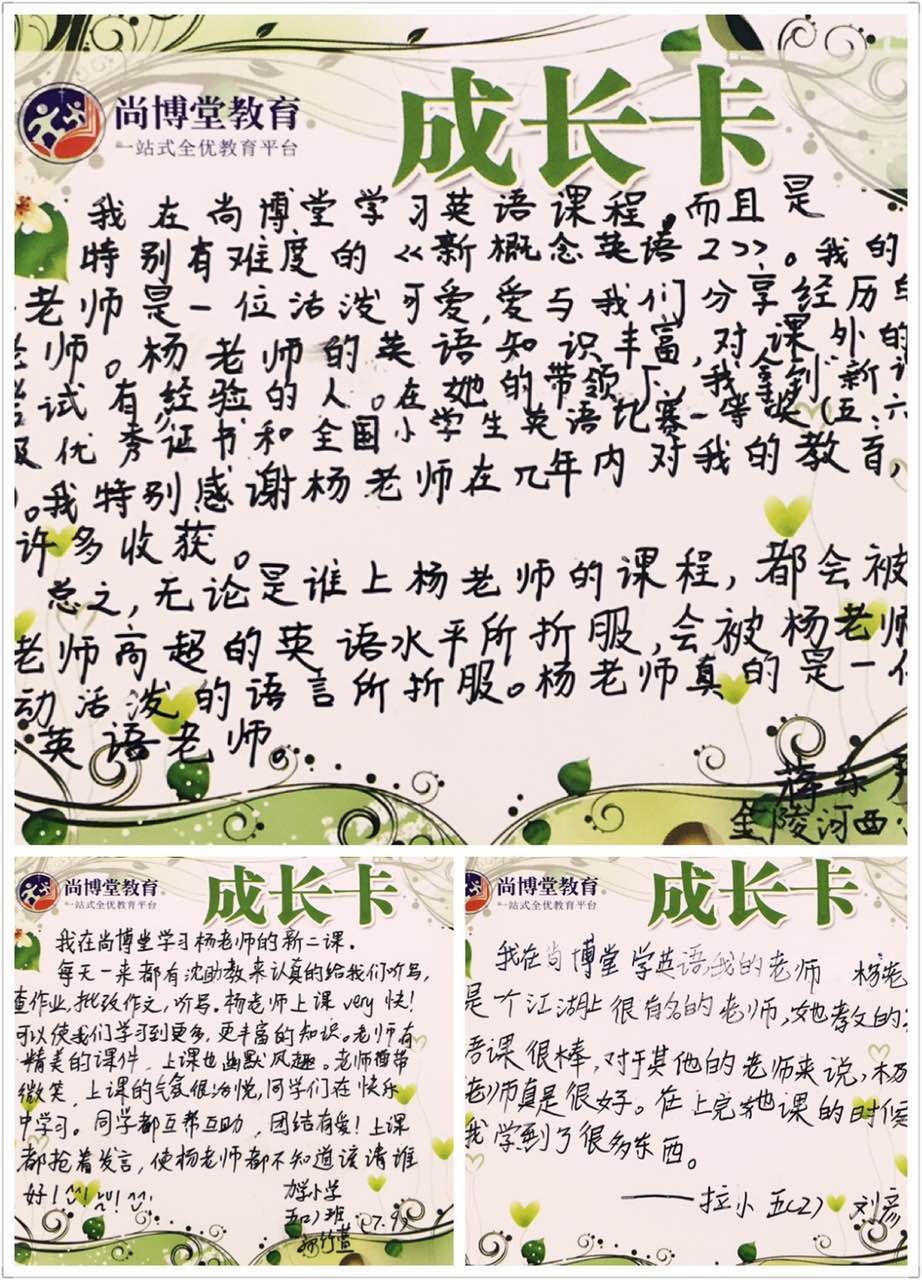 尚博堂教育
一站式全优教育平台
成长卡
我在尚博堂学习英语课程,而且是
特别有难度的《新概念英语2》。我的
老师是一位活泼可爱,爱与我们分享经历的
老师。杨老师的英语知识丰富,对课外的
尝试有经验的人。在她的带领下,我拿到新
级优秀证书和全国小学生英语比赛一等奖(五.六
。我特别感谢杨老师在几年内对我的教育,
许多收获。
总之,无论是谁上杨老师的课程,都会被
老师高超的英语水平所折服,会被杨老师
动活泼的语言所折服。杨老师真的是一位
英语老师。
蒋东
金陵河西
尚博堂教育
一站式全优教育平台
成长卡
我在尚博堂学习杨老师的新二课.
每天一来都有沈助教来认真的给我们听写,
查作业,批改作文,听写。杨老师上课very快!
可以使我们学习到更多,更丰富的知识。老师有
精美的课件,上课也幽默风趣。老师面带
微笑,上课的气氛很活悦,同学们在快乐
中学习。同学都互帮互助,团结有爱!上课
都抢着发言,使杨老师都不知道该请谁
好!
力学小学
五(2)班
尚博堂教育
一站式全优教育平台
成长卡
我在尚博堂学英语,我的老师 杨老
是一个江湖上很有名的老师,她教的
语课很棒,对于其他的老师来说,杨
老师真是很好。在上完她课的时候
我学到了很多东西。
——拉小五(2) 刘彦